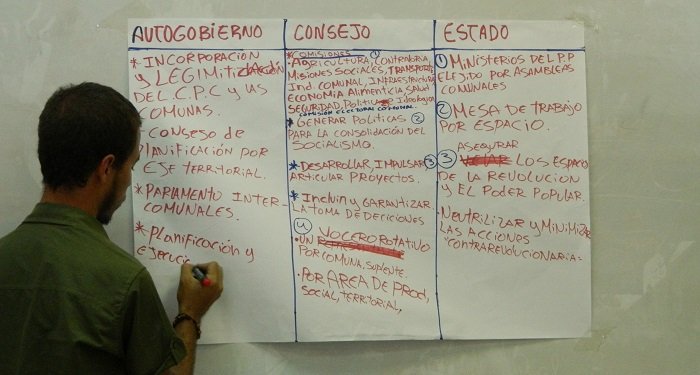 AUTOGOBIERNO
* INCORPORACION
Y LEGIMITIZACIÓN
DEL C.P.C Y LAS
COMUNAS.
* CONSEJO DE
PLANIFICACIÓN POR
EJE TERRITORIAL.
* PARLAMENTO INTER-
COMUNALES.
* Planificación y
EJECUCI
CONSEJO
* COMISIONES ①
AGRICULTURA, CONTRALORIA,
MISIONES SOCIALES, TRANSPORTE,
IND. COMUNAL, INFRAESTRUCTURA
ECONOMIA ALIMENTICIA, SALUD
SEGURIDAD, Política Ideologica
COMISIÓN ELECTORAL COMUNAL
* GENERAR POLITICAS ②
PARA LA CONSOLIDACIÓN DEL
SOCIALISMO.
* DESARROLLAR, IMPULSAR ③
ARTICULAR PROYECTOS.
* Incluir y GARANTIZAR
LA TOMA DE DECICIONES
④ VOCERO ROTATIVO
• UN
POR COMUNA, SUPLENTE.
• POR AREA DE PROD,
SOCIAL, TERRITORIAL,
ESTADO
① MINISTERIOS DEL P.P
ELEJIDO POR ASAMBLEAS
COMUNALES
② MESA DE TRABAJO
POR ESPACIO.
ASEGURAR
③ VELAR LOS ESPACIO
DE LA REVOLUCIÓN
Y EL PODER POPULAR.
• NEUTRILIZAR Y MINIMIZAR
LAS ACCIONES
"CONTRAREVOLUCIONARIA"